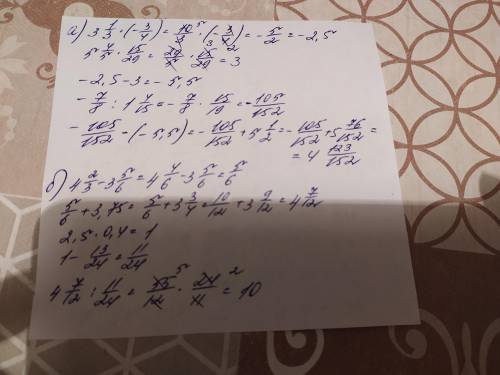 а) 3 1/3 · (- 3/4) = 10/3 · (- 3/4) = - 5/2 = -2,5
5 4/5 · 15/29 = 29/5 · 15/29 = 3
-2,5 - 3 = - 5,5
- 7/8 : 1 4/15 = - 7/8 · 15/19 = - 105/152
- 105/152 - (-5,5) = - 105/152 + 5 1/2 = - 105/152 + 5 76/152 =
= 4 123/152
б) 4 2/3 - 3 5/6 = 4 4/6 - 3 5/6 = 5/6
5/6 + 3,75 = 5/6 + 3 3/4 = 10/12 + 3 9/12 = 4 7/12
2,5 · 0,4 = 1
1 - 13/24 = 11/24
4 7/12 : 11/24 = 55/12 · 24/11 = 10